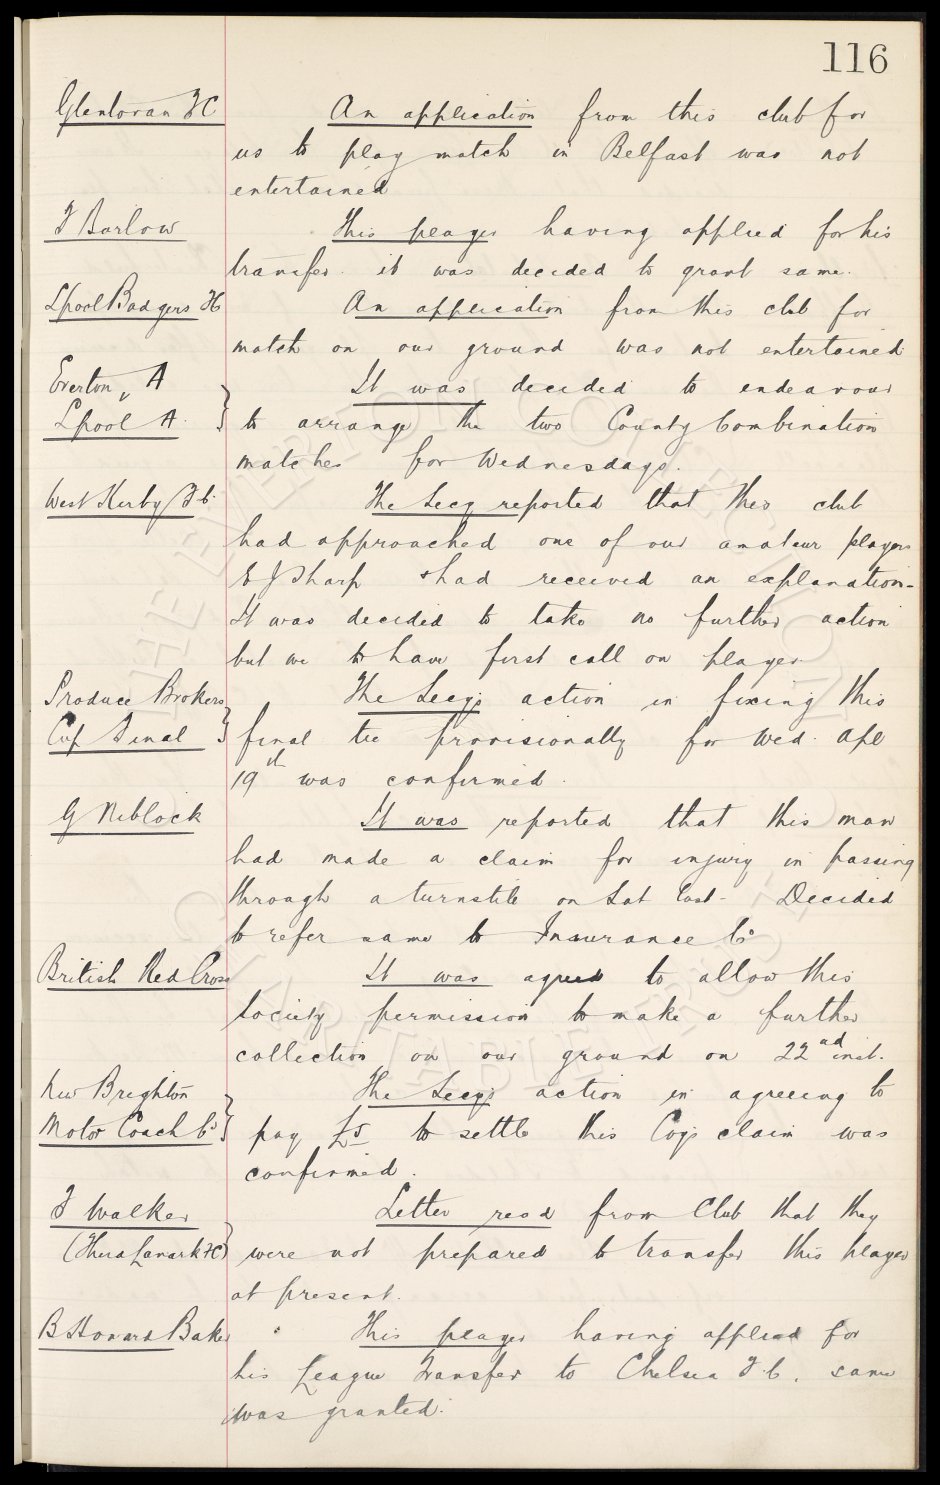 116
Glentoran FC
An application from this club for
us to play match in Belfast was not
entertained
F Barlow
This player having applied for his
transfer. it was decided to grant same.
Lpool Badgers FC
An application from this club for
match on our ground was not entertained
Everton, A
It was decided to endeavour
Lpool A.
to arrange the two County Combination
matches for Wednesdays.
West Kirby F.C.
The Secy reported that this club
had approached one of our amateur players
E J Sharp & had received an explanation-
It was decided to take no further action
but we to have first call on player
Produce Brokers
The Secy's action in fixing this
Cup Final
final tie provisionally for Wed. Apl
19th was confirmed.
G Niblock
It was reported that this man
had made a claim for injury in passing
through a turnstile on Sat last - Decided
to refer same to Insurance Co
British Red Cross
It was agreed to allow this
Society permission to make a further
collection on our ground on 22nd inst.
New Brighton
The Secy's action in agreeing to
Motor Coach Co
pay £5 to settle this Coy's claim was
confirmed.
F Walker
Letter read from Club that they
(Third Lanark FC)
were not prepared to transfer this player
at present.
B Howard Baker
This player having applied for
his League Transfer to Chelsea F.C. same
was granted.